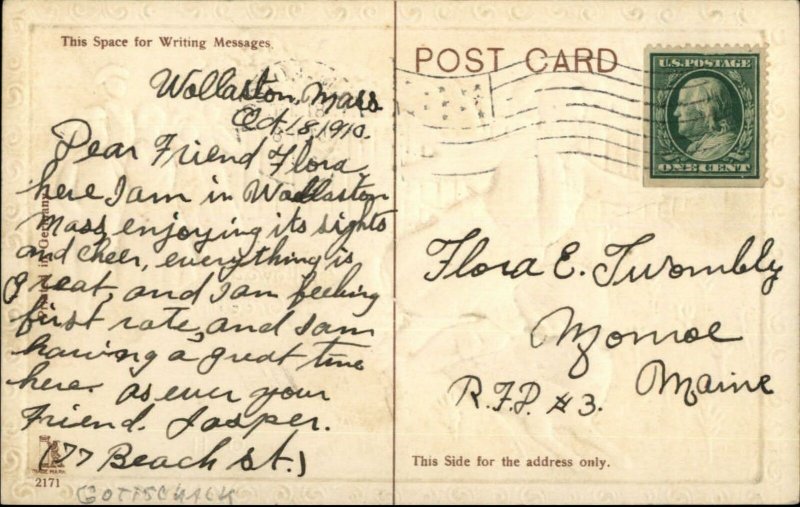 This Space for Writing Messages
Wollaston, Mass
Oct. 18, 1910.
Dear Friend Flora,
here I am in Wollaston
Mass, enjoying its sights
and cheer, everything is
great, and I am feeling
first rate, and I am
having a great time
here. as ever your
Friend. Jasper.
(77 Beach St.)
in Germany
TRADE MARK
2171
GOTTSCHALK
POST CARD
U.S. POSTAGE
ONE CENT
Flora E. Twombly
Monroe
Maine
R.F.D. #3.
This Side for the address only.